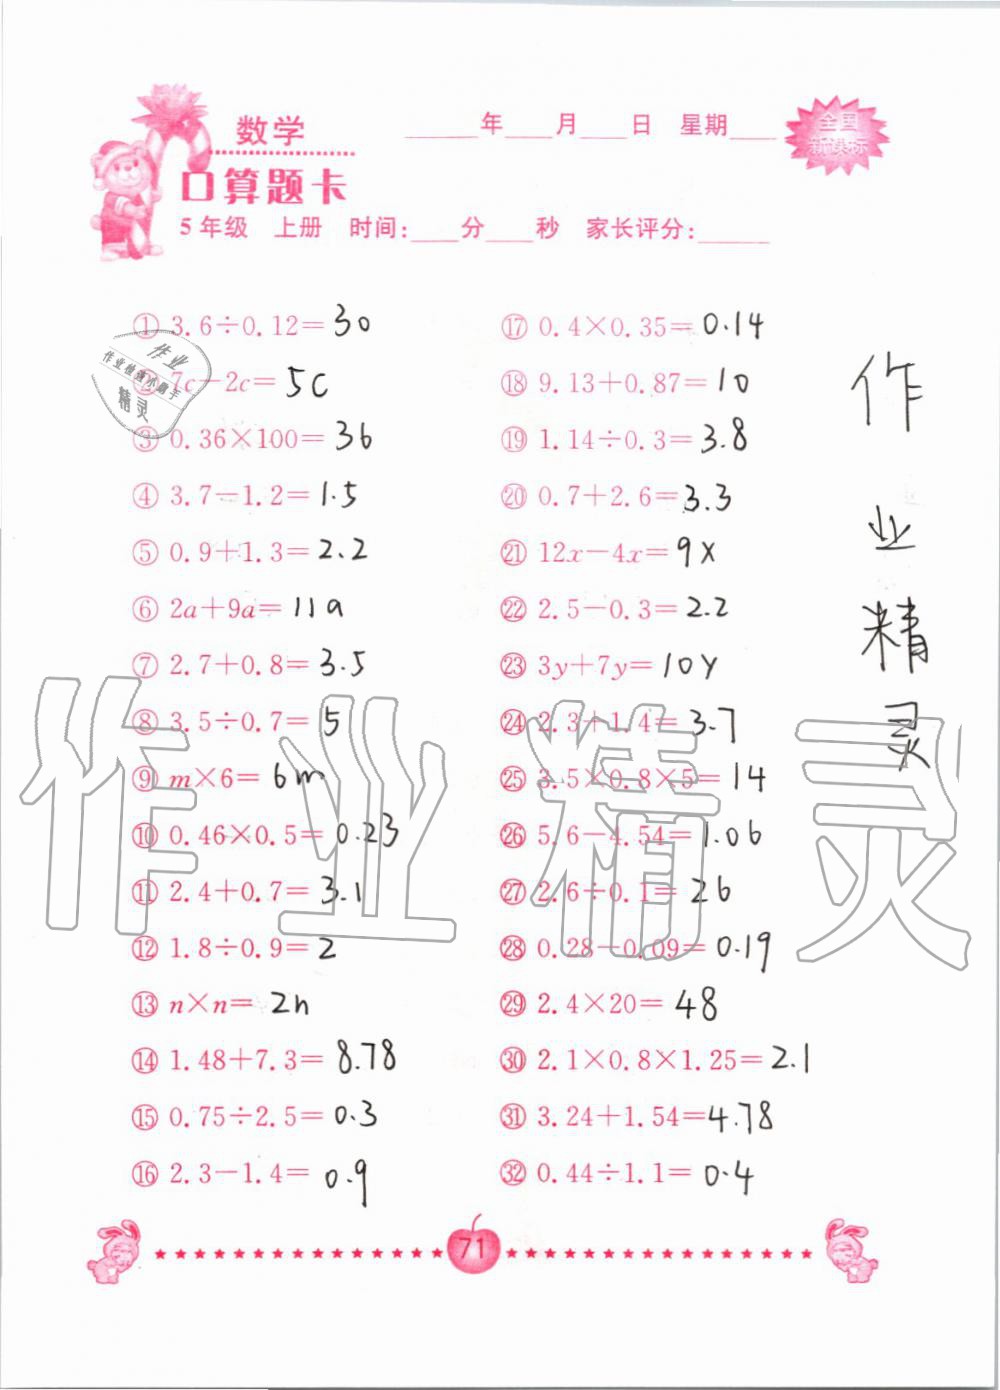 数学
____年____月____日 星期____
全国
新课标
口算题卡
5年级 上册 时间:____分____秒 家长评分:____
① 3.6÷0.12=30
② 7c-2c=5c
③ 0.36×100=36
④ 3.7-1.2=1.5
⑤ 0.9+1.3=2.2
⑥ 2a+9a=11a
⑦ 2.7+0.8=3.5
⑧ 3.5÷0.7=5
⑨ m×6=6m
⑩ 0.46×0.5=0.23
⑪ 2.4+0.7=3.1
⑫ 1.8÷0.9=2
⑬ n×n=2n
⑭ 1.48+7.3=8.78
⑮ 0.75÷2.5=0.3
⑯ 2.3-1.4=0.9
⑰ 0.4×0.35=0.14
⑱ 9.13+0.87=10
⑲ 1.14÷0.3=3.8
⑳ 0.7+2.6=3.3
㉑ 12x-4x=9x
㉒ 2.5-0.3=2.2
㉓ 3y+7y=10y
㉔ 2.3+1.4=3.7
㉕ 3.5×0.8×5=14
㉖ 5.6-4.54=1.06
㉗ 2.6÷0.1=26
㉘ 0.28-0.09=0.19
㉙ 2.4×20=48
㉚ 2.1×0.8×1.25=2.1
㉛ 3.24+1.54=4.78
㉜ 0.44÷1.1=0.4
作业精灵
作业
作业检查小助手
精灵
作业精灵
71